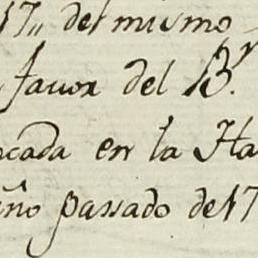 17,, del mismo
favor del B.r
ocada en la Ha
año passado de 17